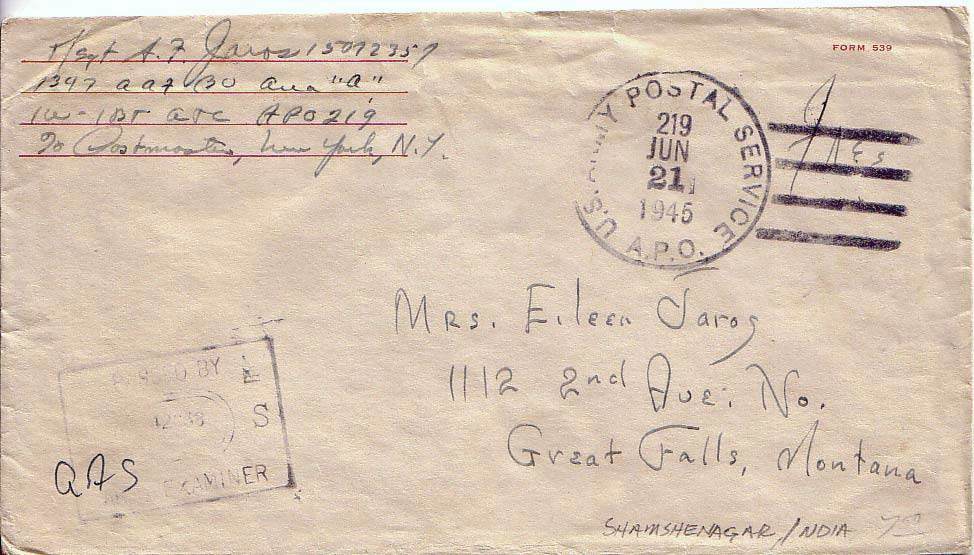 T/Sgt A. F. Jaros 15072357
1347 AAF BU Area "A"
ATC APO 219
% Postmaster, New York, N.Y.
FORM 539
U.S. ARMY POSTAL SERVICE
219
JUN
21
1945
A.P.O.
Free
Mrs. Eileen Jaros
1112 2nd Ave. No.
Great Falls, Montana
PASSED BY
S
EXAMINER
SHAMSHENAGAR, INDIA